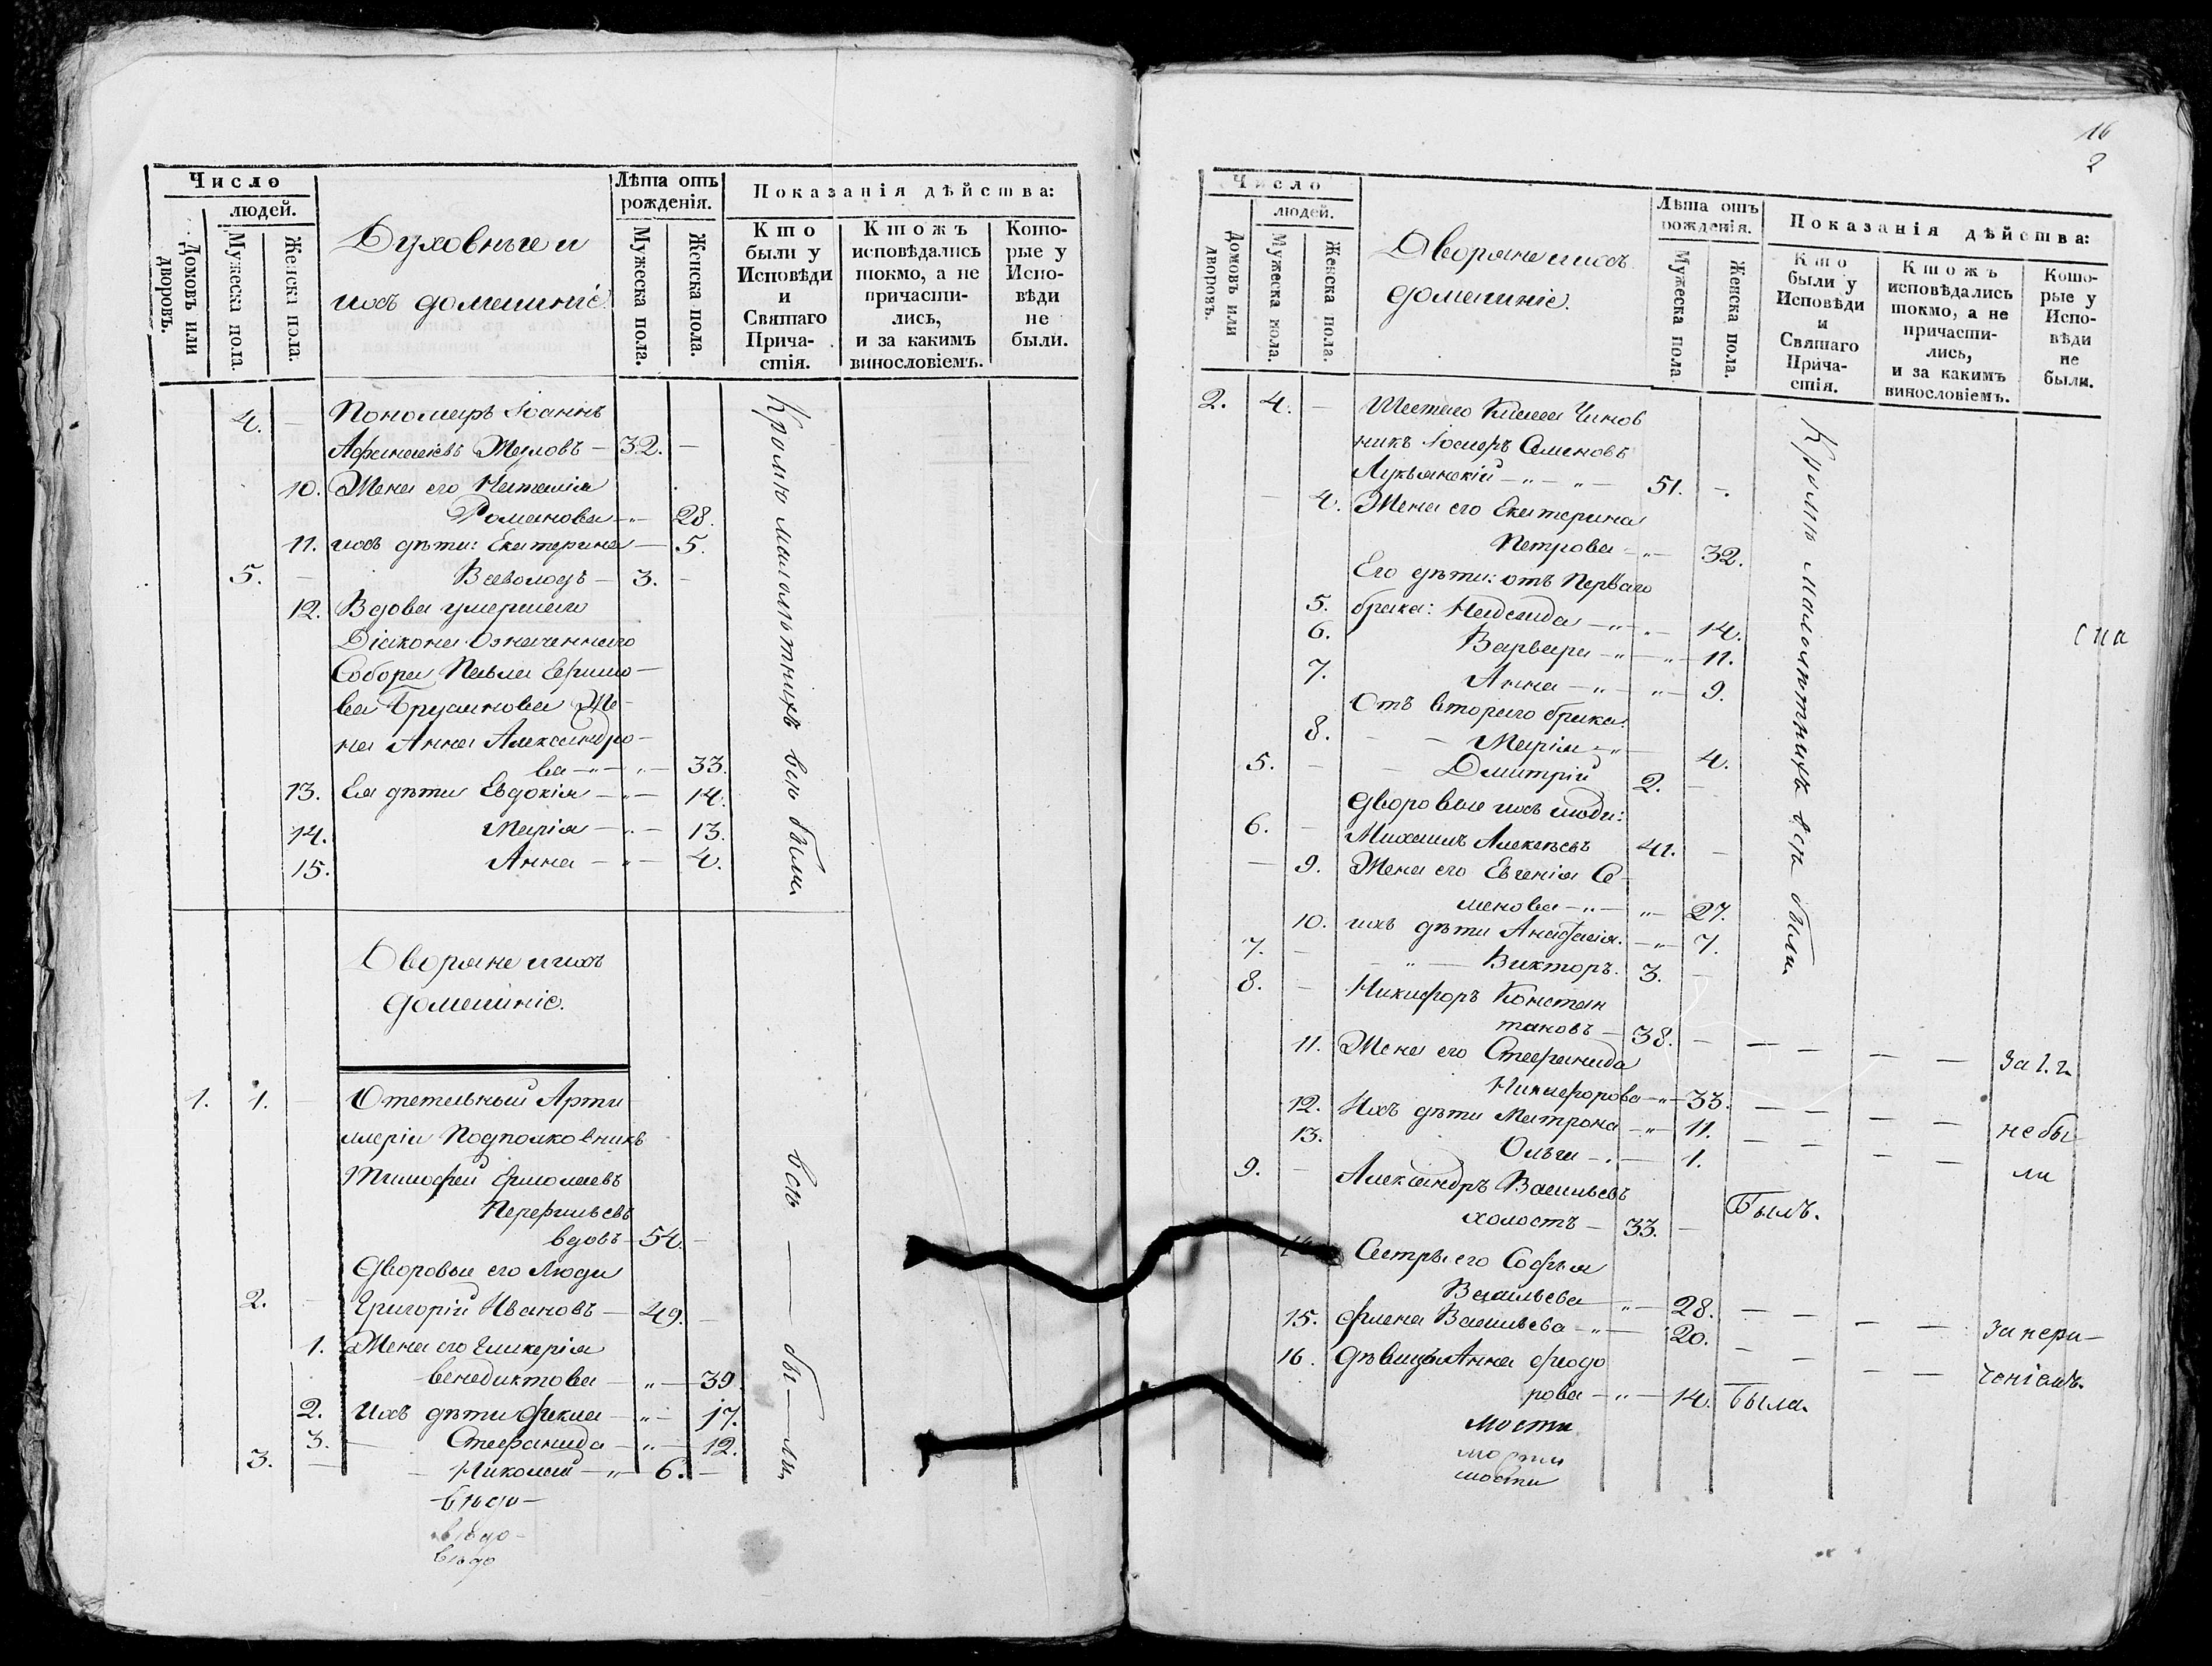 Число
людей.
Домовъ или дворовъ.
Мужеска пола.
Женска пола.
Духовные и
ихъ домашніе
Лѣта отъ
рожденія.
Мужеска пола.
Женска пола.
Показанія дѣйства:
Кто
были у
Исповѣди
и
Святаго
Прича-
стія.
Ктожъ
исповѣдались
токмо, а не
причасти-
лись,
и за какимъ
винословіемъ.
Кото-
рые у
Испо-
вѣди
не
были.
4. — Пономарь Іоаннъ
Афанасіевъ — 32. —
10. Жена его Наталія
Романова — „ — 28.
11. ихъ дѣти: Екатерина — 5.
5. — Всеволодъ — 3. —
12. Вдова умершаго
Діакона Означеннаго
Собора Павла Ефимо-
ва Же-
на Анна Александро-
ва — „ — „ — 33.
13. Ея дѣти Евдокія — „ — 14.
14. Марія — „ — 13.
15. Анна — „ — 4.
Кромѣ малолѣтнихъ всѣ были
Дворяне и ихъ
домашніе.
1. 1. — Отставный Арти
ллеріи Подполковникъ
Тимофей Ермолаевъ
Перфильевъ
вдовъ — 54. —
Дворовыи его Люди
2. — Григорій Ивановъ — 49. —
1. Жена его Гликерія
Венедиктова — „ — 39
2. Ихъ дѣти Фекла — „ — 17.
3. — Стефанида — „ — 12.
3. — Николай — „ — 6. —
всѣ — бы — ли,
вѣдо —
вѣдо —
вѣдо
16
2
Число
людей.
Домовъ или дворовъ.
Мужеска пола.
Женска пола.
Дворяне и ихъ
домашніе.
Лѣта отъ
рожденія.
Мужеска пола
Женска пола.
Показанія дѣйства:
Кто
были у
Исповѣди
и
Святаго
Прича-
стія.
Ктожъ
исповѣдались
токмо, а не
причасти-
лись,
и за какимъ
винословіемъ.
Кото-
рые у
Испо-
вѣди
не
были.
2. 4. — Шестаго Класса Чинов
никъ Іосифъ Семеновъ
Лукьянскій — „ — „ — 51. —.
— 4. Жена его Екатерина
Петрова — „ — 32.
Его дѣти: отъ Перваго
5. брака: Надежда — „ — 14.
6. Варвара — „ — „ — 11.
7. Анна — „ — „ — 9.
Отъ втораго брака
8. — — Марія — „ — 4.
5. — — Дмитрій 2. —
дворовые ихъ люди:
6. — Михаилъ Алексѣевъ 41. —
— 9. Жена его Евгенія Се-
менова — „ — „ — 27.
10. ихъ дѣти Анастасія. — „ — 7.
7. — — „ — Викторъ. 3. —
Кромѣ малолѣтнихъ всѣ были
8. — Никифоръ Констан
тиновъ — 38. — — — — — За 2. г.
11. Жена его Стефанида
Никифорова — „ — 33. — — — —
12. Ихъ дѣти Матрона — „ — 11. — — — — не бы-
13. Ольга — „ — 1. ли
9. — Александръ Васильевъ
холостъ — 33. — Былъ.
14. Сестры его Софья
Васильева — „ — 28. — — — — За нера-
15. Фаина Васильева — „ — 20. — — — — ченіемъ.
16. дѣвица Анна Феодо
рова — „ — 14. Была.
мости
мости
мости